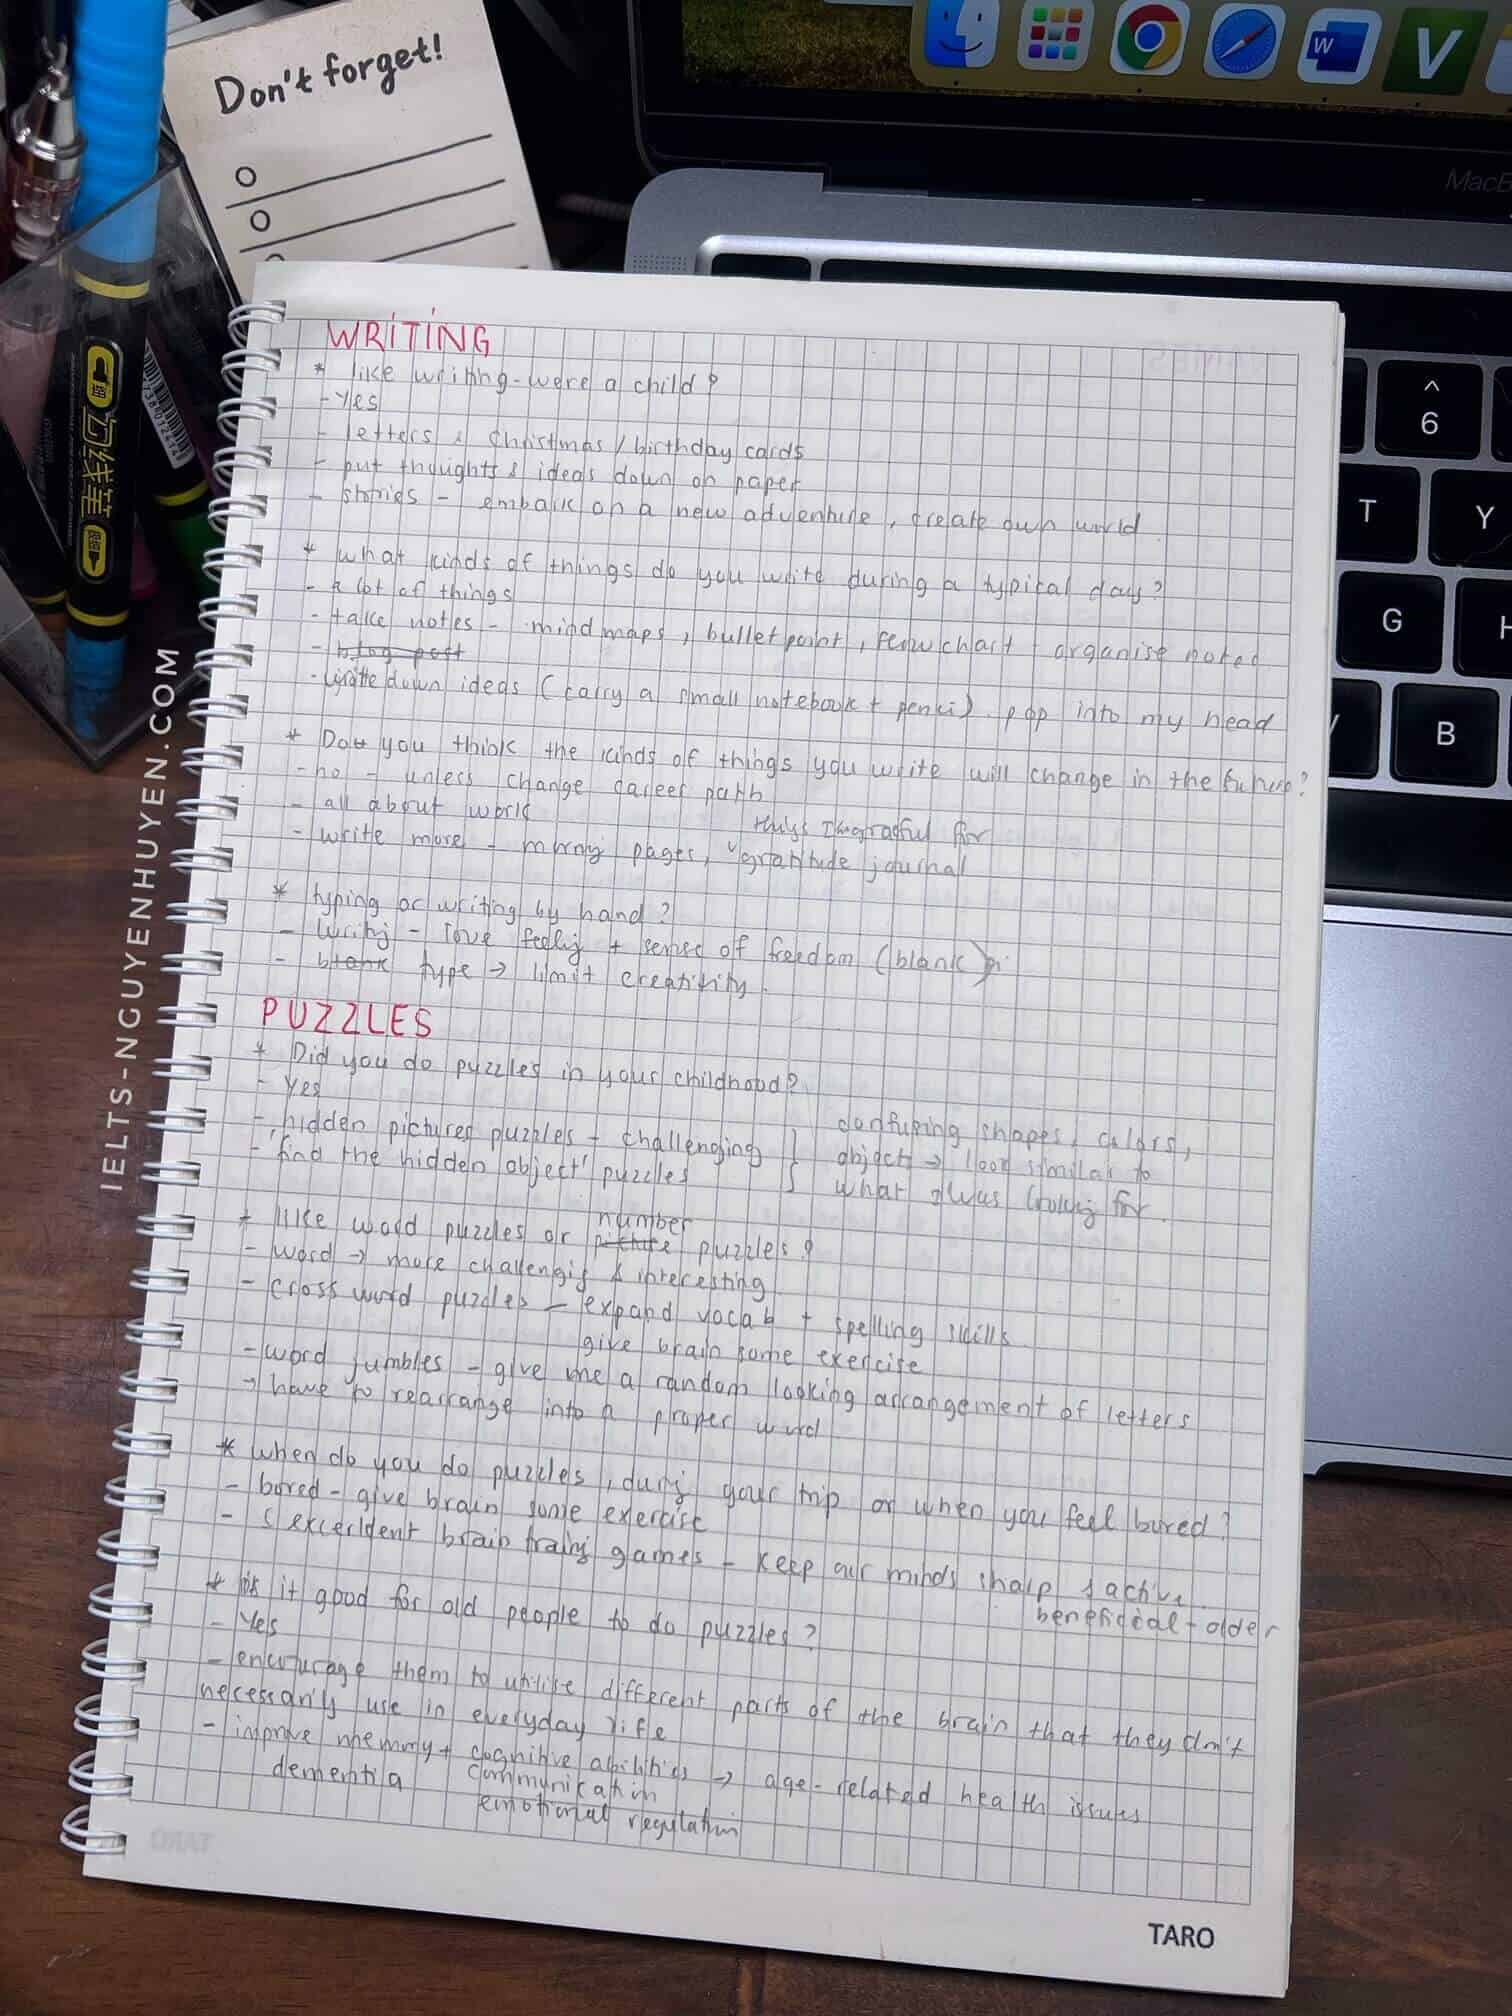 Don't forget!
MacB
^
6
T
Y
G
H
B
IELTS-NGUYENHUYEN.COM
WRITING
* like writing - were a child?
- Yes
- letters & christmas / birthday cards
- put thoughts & ideas down on paper
- stories - embark on a new adventure, create own world
* What kinds of things do you write during a typical day?
- A lot of things
- take notes - mind maps, bullet point, flow chart + organise noted
- blog post
- write down ideas (carry a small notebook + pencil) pop into my head
* Do you think the kinds of things you write will change in the future?
- no - unless change career path
- all about work
things I'm grateful for
- write more - morning pages, gratitude journal
* typing or writing by hand?
- writing - love feeling + sense of freedom (blank)
- blank type → limit creativity.
PUZZLES
* Did you do puzzles in your childhood?
- Yes
- hidden pictures puzzles - challenging
- 'find the hidden object' puzzles
confusing shapes, colors,
objects → look similar to
what I was looking for.
number
* like word puzzles or picture puzzles?
- word → more challenging & interesting
- cross word puzzles - expand vocab + spelling skills
give brain some exercise
- word jumbles - give me a random looking arrangement of letters
→ have to rearrange into a proper word
* when do you do puzzles, during your trip or when you feel bored?
- bored - give brain some exercise
- excerldent brain training games - keep our minds sharp & active.
* is it good for old people to do puzzles?
beneficial - older
- Yes
- encourage them to utilise different parts of the brain that they don't
necessarily use in everyday life
- improve memory + cognitive abilities → age-related health issues
dementia
communication
emotional regulation
TARO